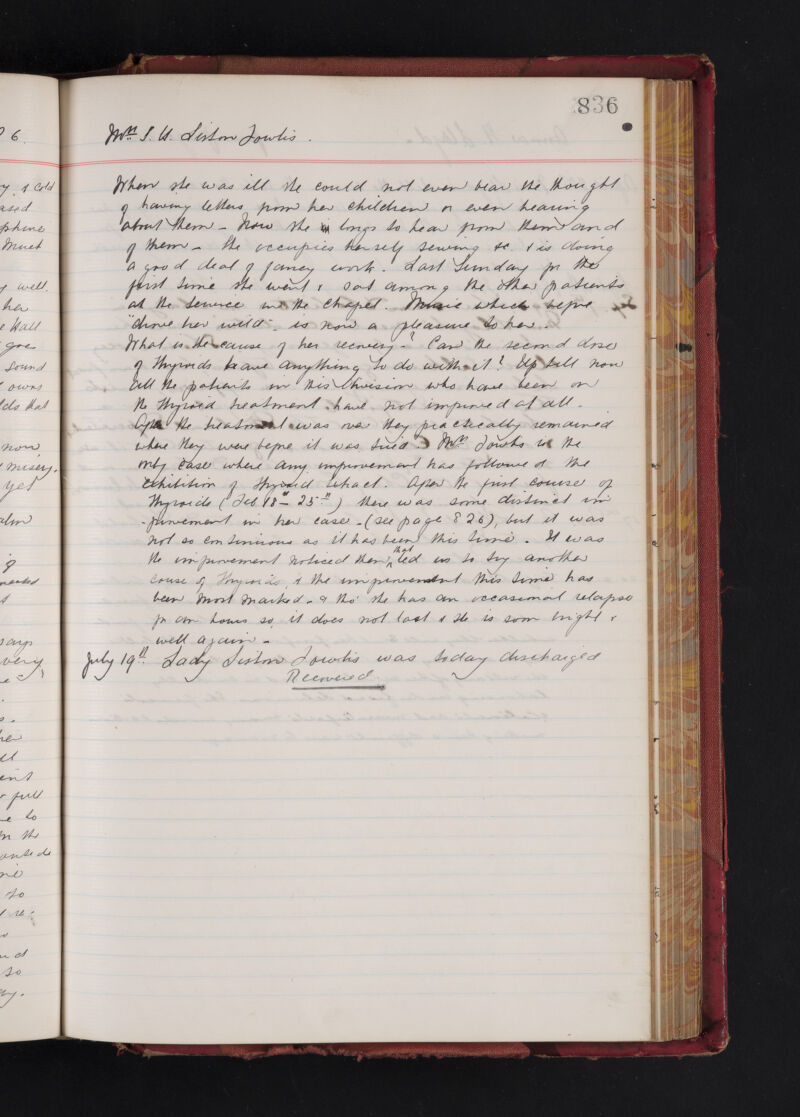 836
Mrs. S. U. Liston Fowlis.
When she was ill she could not even bear the thought
of having letters from her children or even hearing
about them - Now she longs to hear from them and
of them - She occupies herself sewing &c. & is doing
a good deal of fancy work. Last Sunday for the
first time she went & sat among the other patients
at the service in the chapel. Music which before
"drove her wild" is now a pleasure to her.
What is the cause of her recovery? Can the second dose
of thyroids have anything to do with it? Up till now
all the patients in this division who have been on
the thyroid treatment have not improved at all.
After the treatment was over they practically remained
where they were before it was tried. Mrs. Fowlis is the
only case where any improvement has followed the
exhibition of thyroid extract. After the first course of
Thyroids (Feb 18th - 25th) there was some distinct im
-provement in her case - (see page 826), but it was
not so continuous as it has been this time. It was
the improvement noticed then that led us to try another
couse of Thyroids, & the improvement this time has
been most marked - & tho' she has an occasional relapse
for an hour or so, it does not last & she is soon bright &
well again -
July 19th Lady Liston Fowlis was today discharged
Recovered.
06.
y & cold
ased
phine
much
y well.
her
e Hall
goes
sound
owns
lds that
now
misery.
yet
alm
says
very
he
ll
full
to
in the
so
re-
so